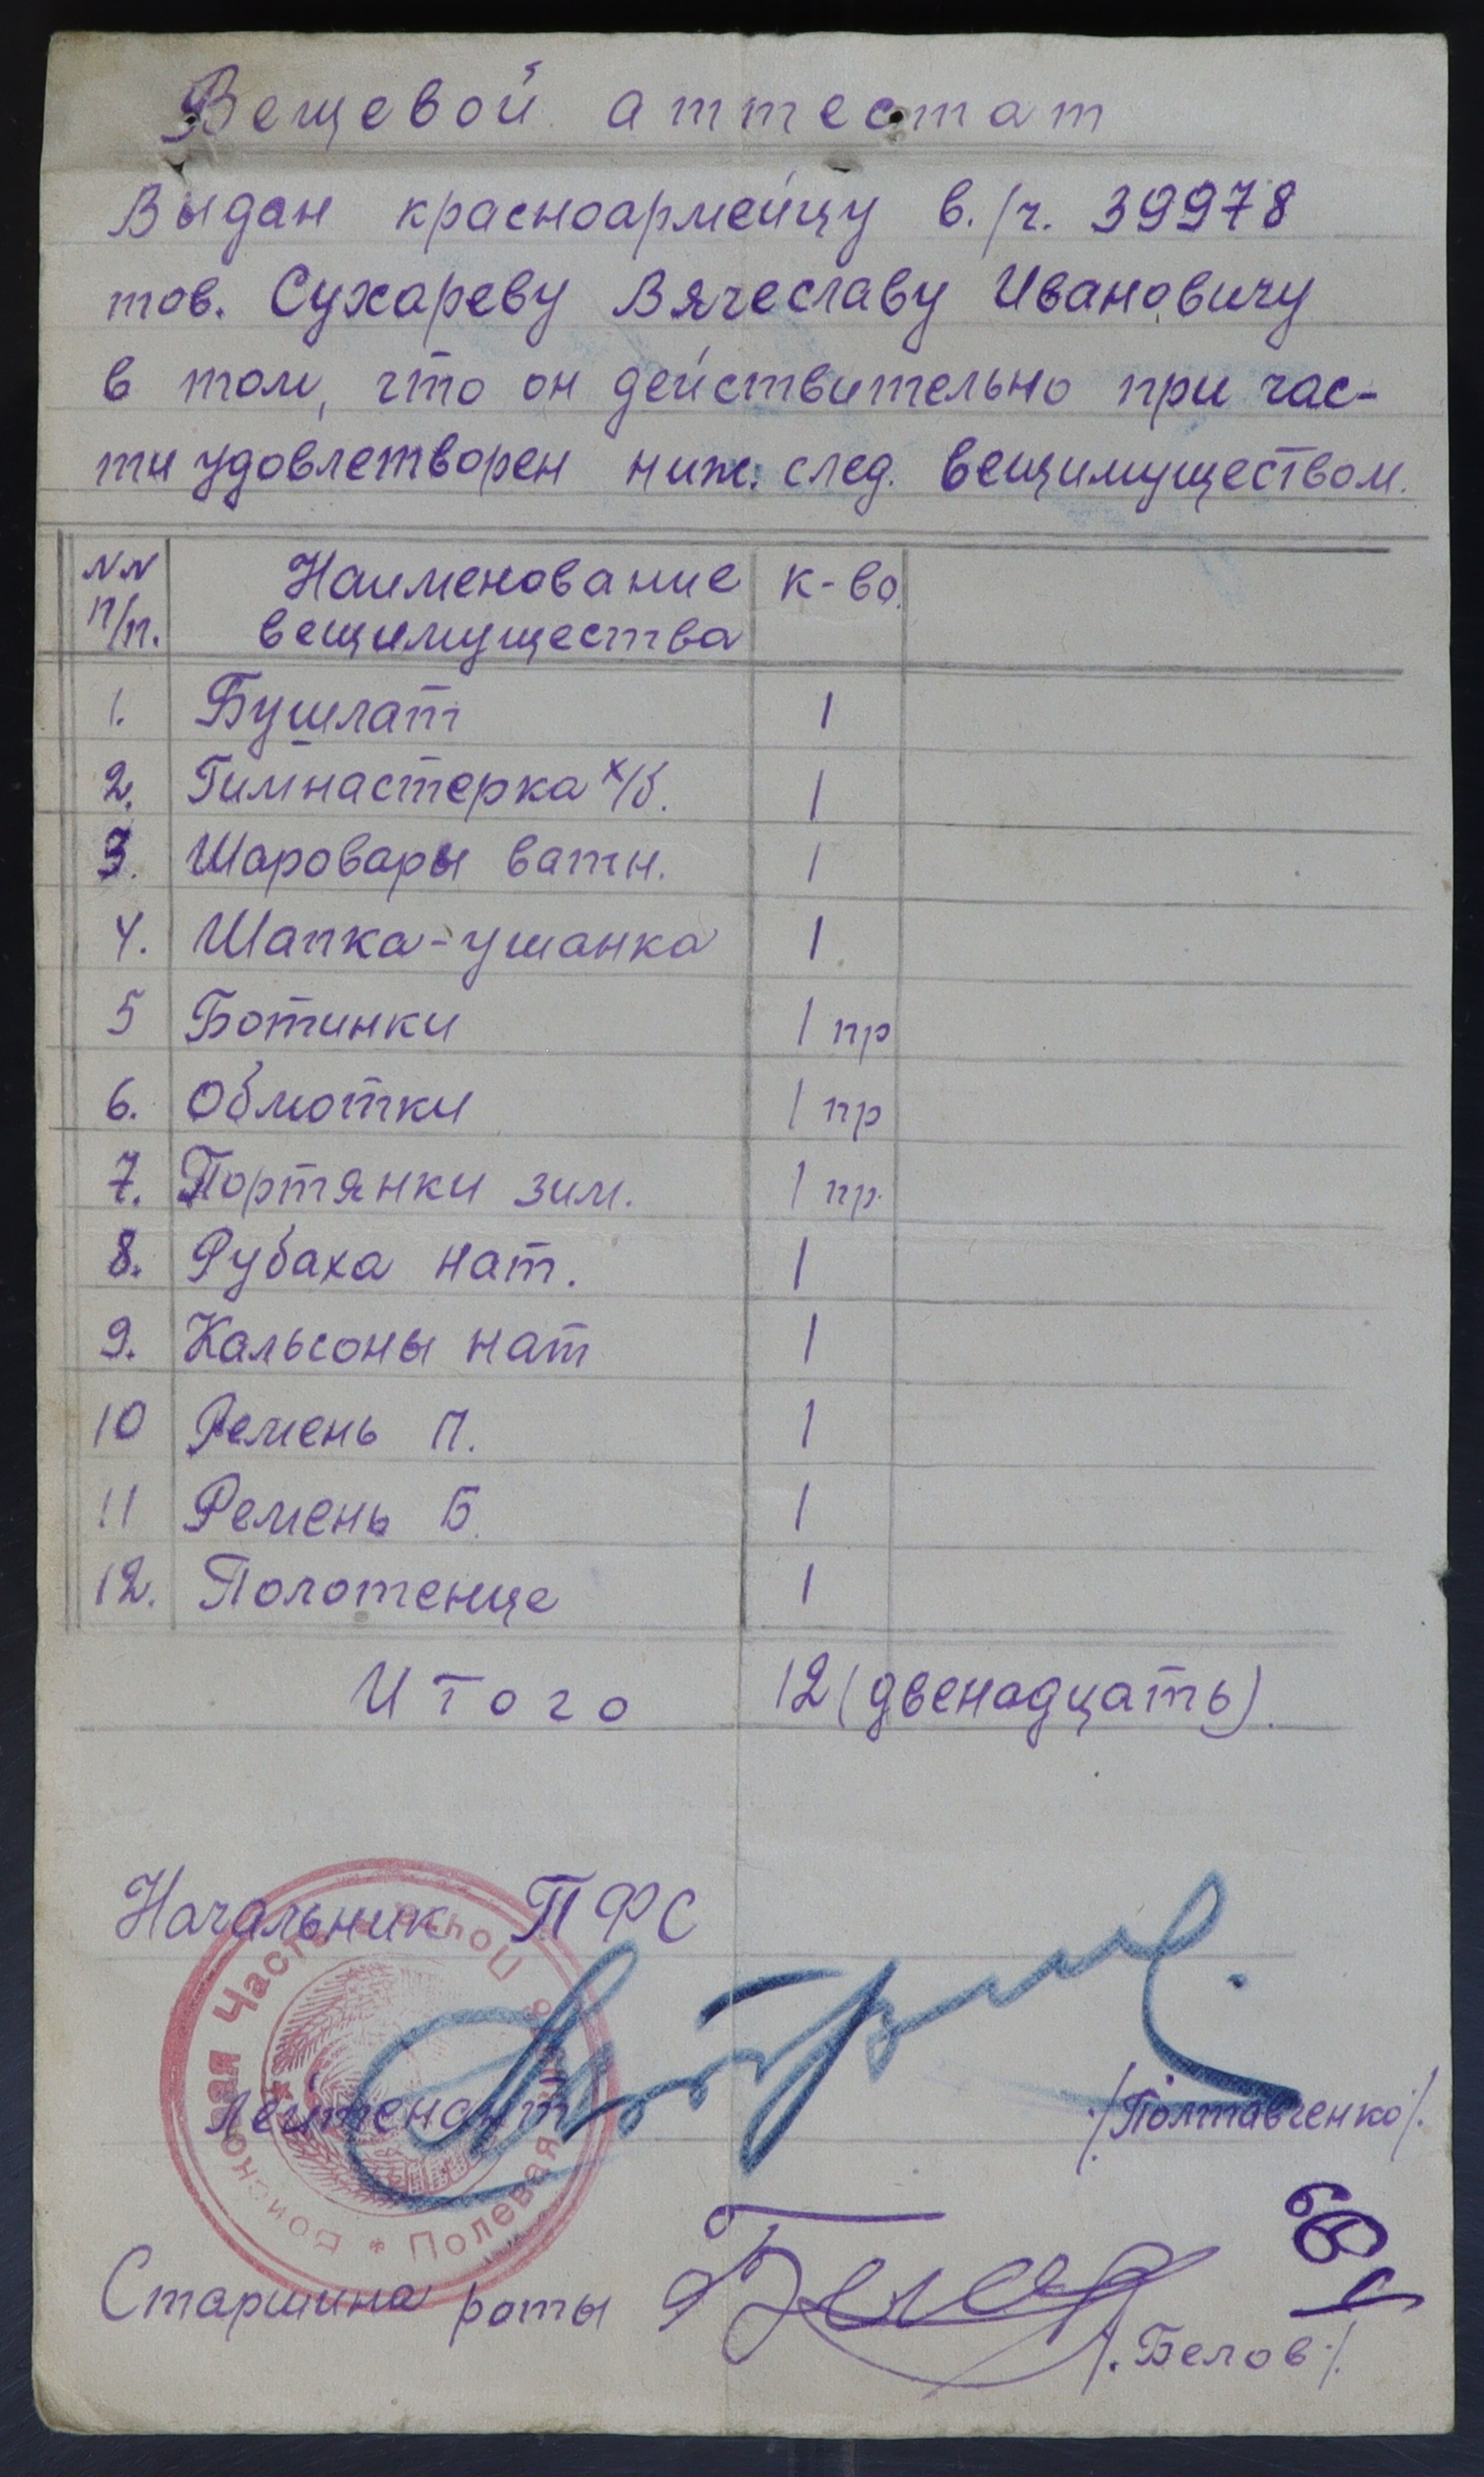 Вещевой аттестат
Выдан красноармейцу в./ч. 39978
тов. Сухареву Вячеславу Ивановичу
в том, что он действительно при час-
ти удовлетворен ниж. след. вещимуществом.
NN п/п. Наименование вещимущества к-во.
1. Бушлат 1
2. Гимнастерка х/б. 1
3. Шаровары ватн. 1
4. Шапка-ушанка 1
5 Ботинки 1 пр
6. Обмотки 1 пр
7. Портянки зим. 1 пр.
8. Рубаха нат. 1
9. Кальсоны нат 1
10 Ремень П. 1
11 Ремень Б. 1
12. Полотенце 1
Итого 12 (двенадцать).
Начальник ПФС
Лейтенант /Полтавченко/.
Старшина роты /.Белов./
Полевая
Часть